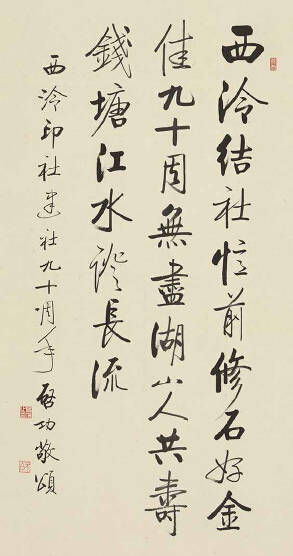 西泠結社憶前修石好金
佳九十周無盡湖山人共壽
錢塘江水證長流
西泠印社建社九十周年 啓功敬頌